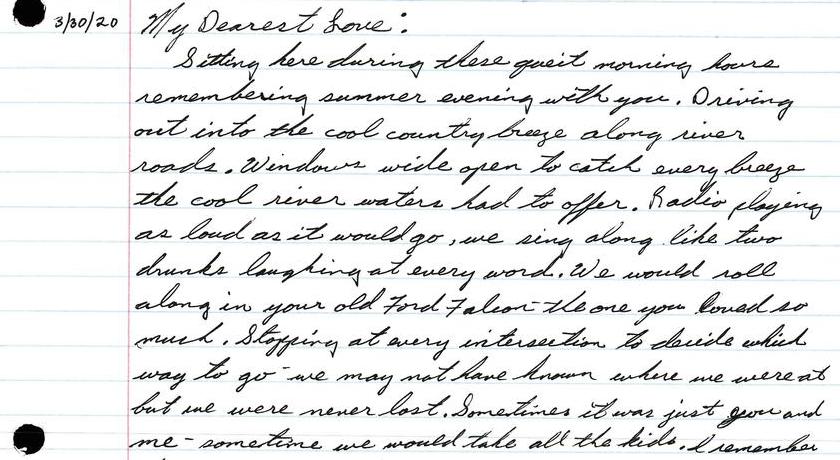 3/30/20 My Dearest Love:
Sitting here during these queit morning hours
remembering summer evening with you. Driving
out into the cool country breeze along river
roads. Windows wide open to catch every breeze
the cool river waters had to offer. Radio playing
as loud as it would go, we sing along like two
drunks laughing at every word. We would roll
along in your old Ford Falcon - the one you loved so
much. Stopping at every intersection to decide which
way to go - we may not have known where we were at
but we were never lost. Sometimes it was just you and
me - sometime we would take all the kids. I remember